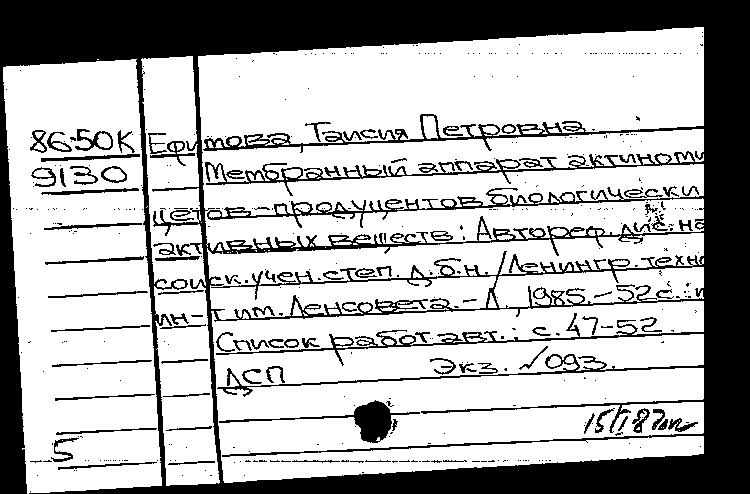 86-50К Ефимова, Таисия Петровна.
9130 Мембранный аппарат актиноми
цетов-продуцентов биологически
активных веществ: Автореф. дис. на
соиск. учен. степ. д.б.н. / Ленингр. техно
ин-т им. Ленсовета. - Л., 1985. - 52 с.:
Список работ авт.: с. 47-52.
ДСП Экз. №093.
5